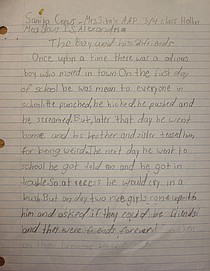 Saniya
AAP 3/4 class
The boy and his
Once upon a time there was a
boy who moved in town. On the first day
of school he was mean to everyone in
school. He punched, he kicked, he pushed and
he screamed. But, later that day he went
home and his brother and sister teased him
for being weird. The next day he went to
school he got told and he got in
trouble. So at recess he would cry in a
bush. But one day two nice girls came up to
him and asked if they could be friends!
and they were friends forever!